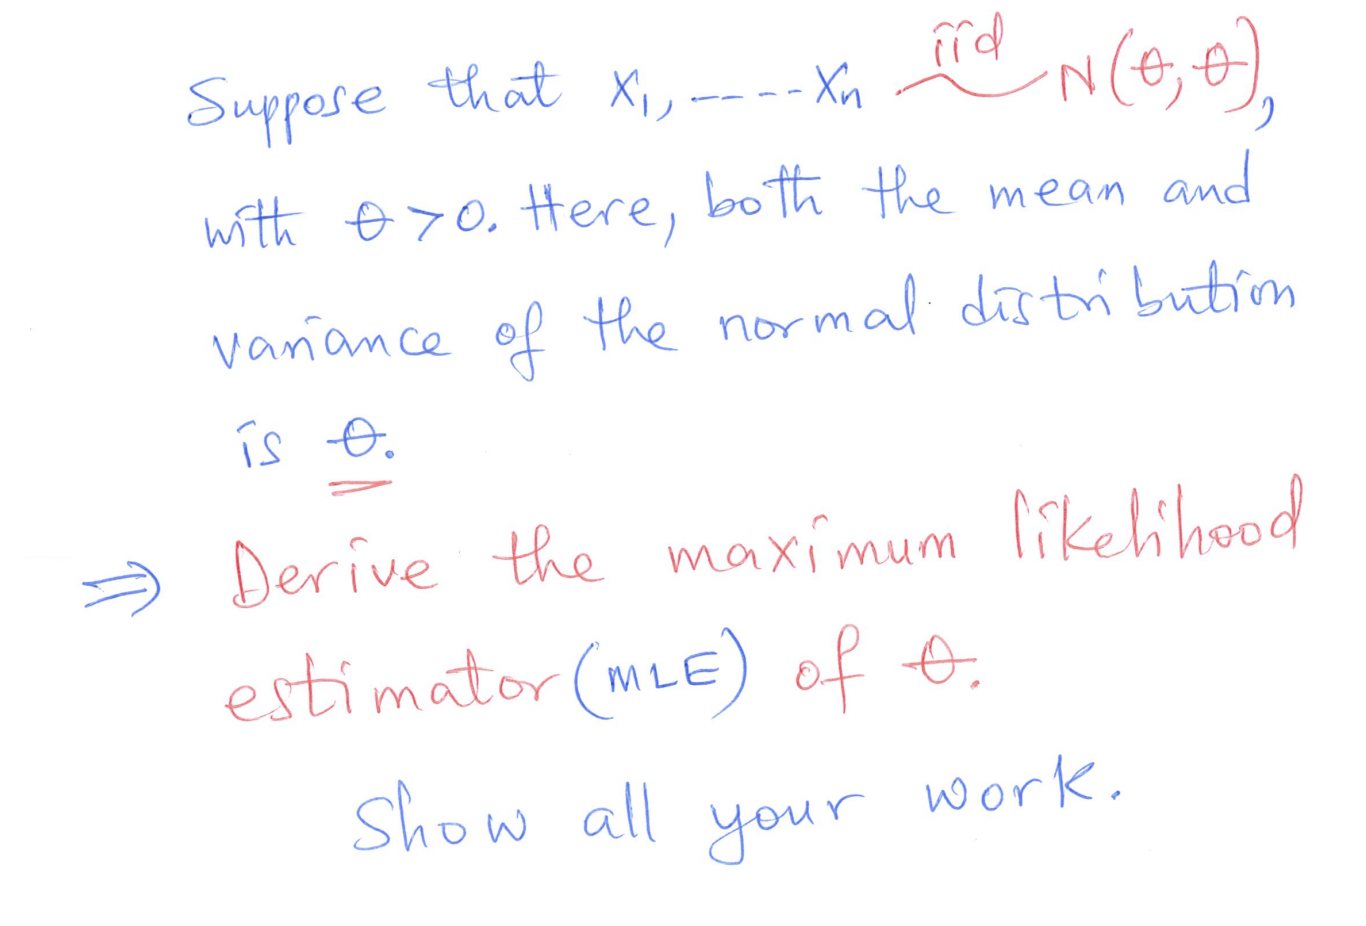 Suppose that X₁, ----- Xn iid N(θ, θ),
with θ > 0. Here, both the mean and
variance of the normal distribution
is θ.
⇒ Derive the maximum likelihood
estimator (MLE) of θ.
Show all your work.